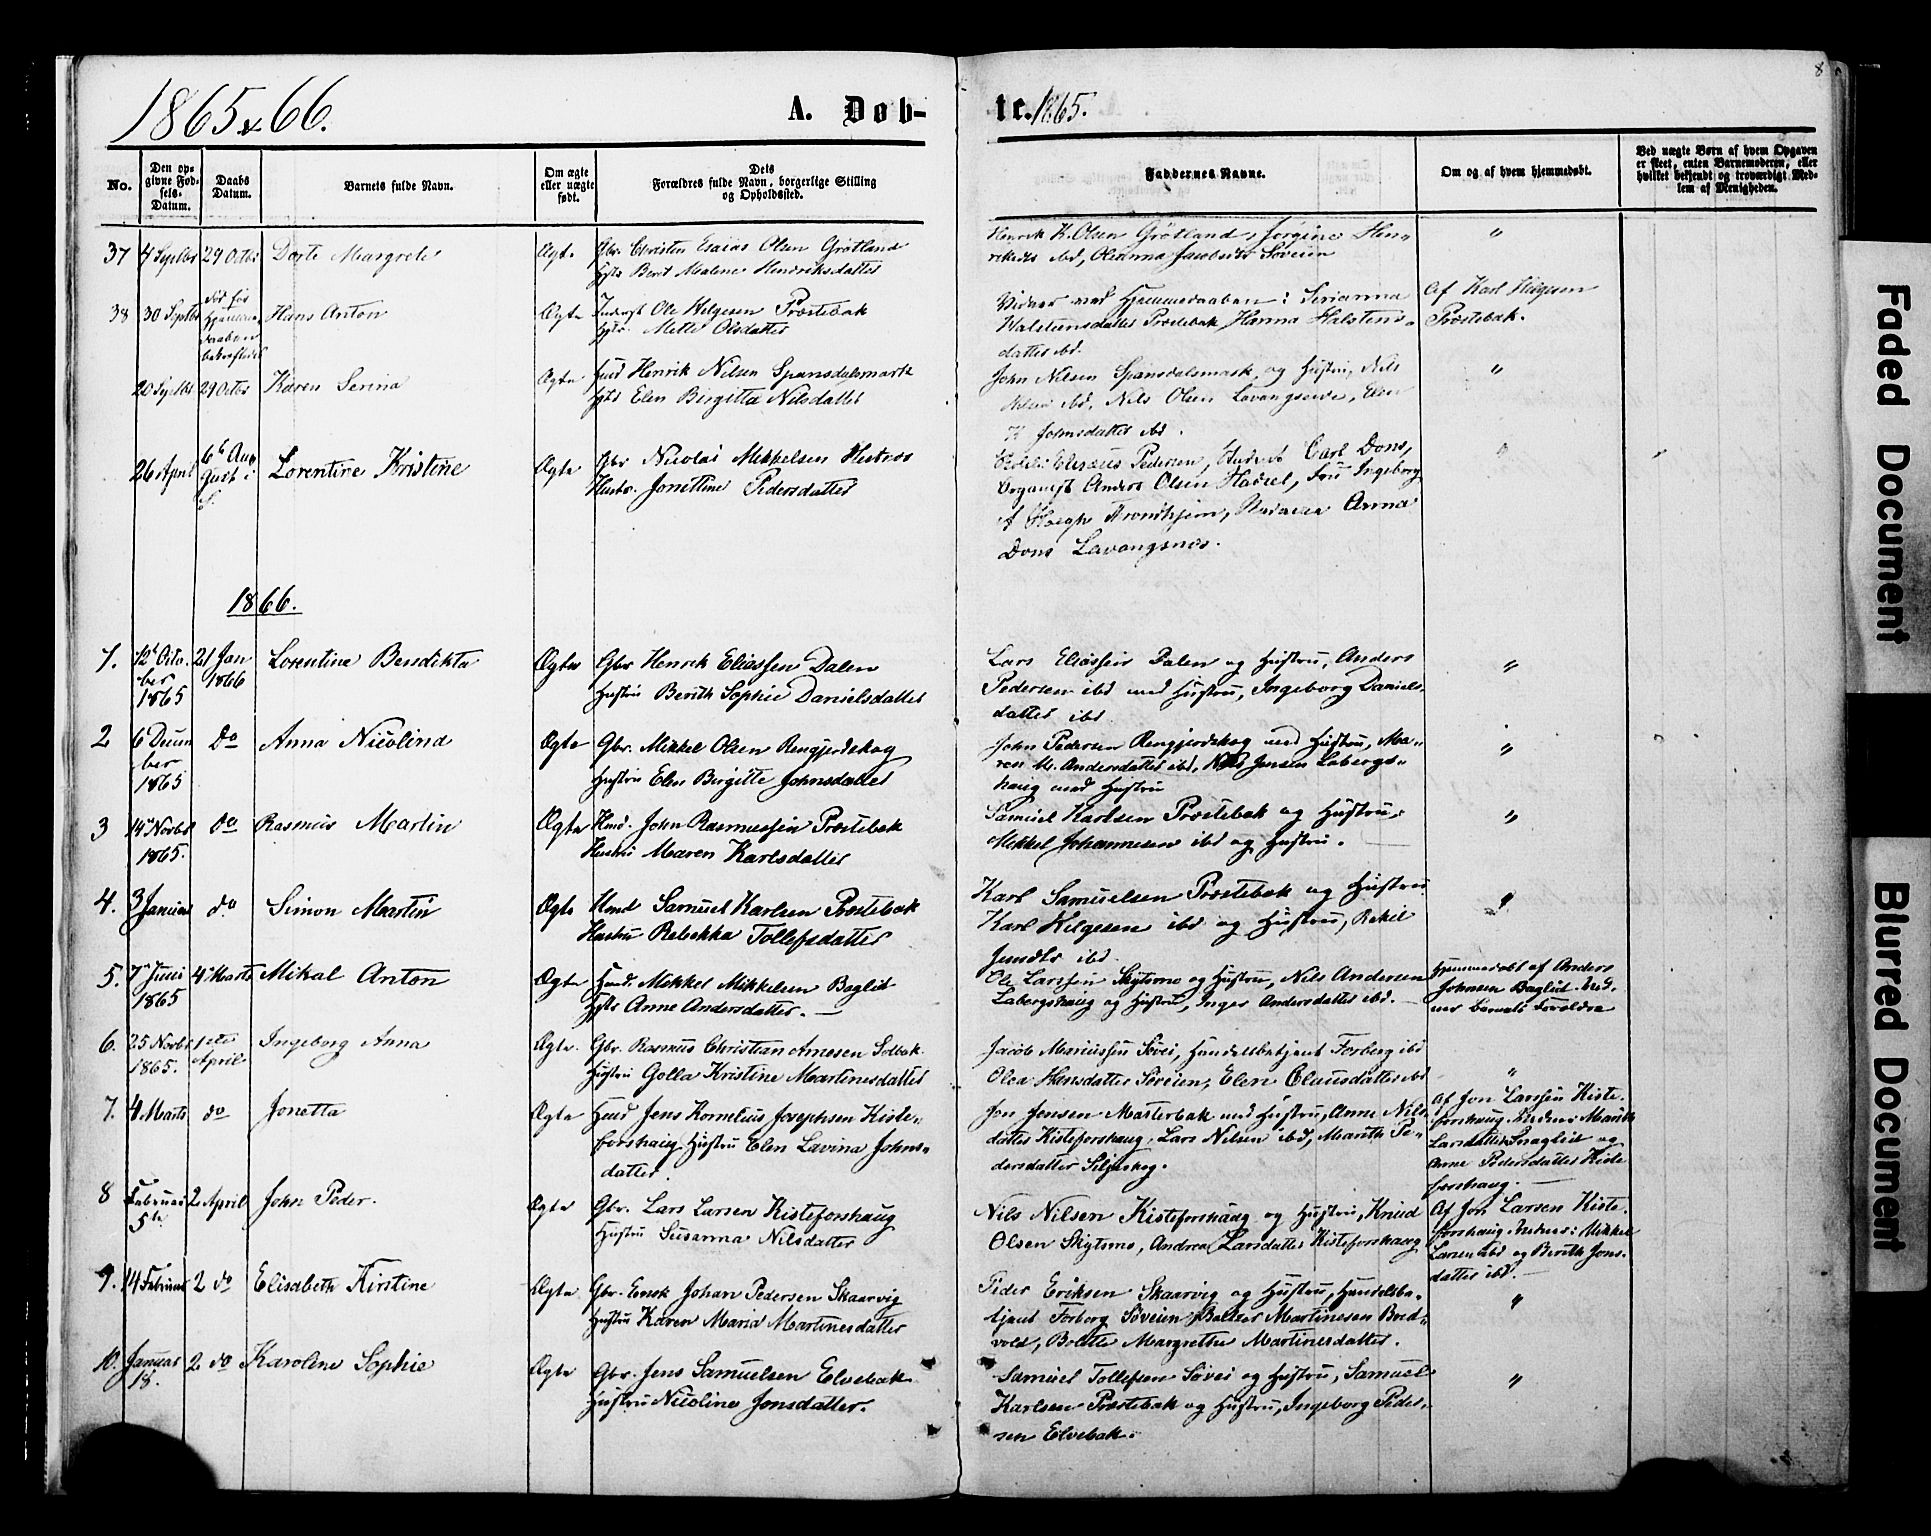 1865 & 66.
A. Døb-
te. 1865.
8
No.
Den op-
givne Fød-
sels-
Datum.
Daabs
Datum.
Barnets fulde Navn.
Om ægte
eller uægte
født.
Dets
Forældres fulde Navn, borgerlige Stilling
og Opholdssted.
Faddernes Navne.
Om og af hvem hjemmedøbt.
Ved uægte Børn af hvem Opgaven
er skeet, enten Barnemoderen, eller
hvilket bekjendt og troværdigt Med-
lem af Menigheden.
37 4 Septbr 29 Octbr Dorte Margrete Ægte Gbr. Christen Esaias Olsen Grøtland
Hst. Berit Malene Hendriksdatter
Henrik K. Olsen Grøtland, Jorgine Hen-
riksdr ibd, Oleanna Jacobsdr Søveien "
38 30 Septbr Hans Anton Ægte Ole Helgesen Præstebak
Mette Olsdatter
Vidner ved Hjemmedaaben: Serianna
Præstebak Hanna Halstens-
datter ibd.
Af Karl Helgesen
Præstebak.
20 Septbr 29 Octbr Karen Serina Ægte Henrik Nilsen Spansdalsmark
Elen Birgitta Nilsdatter
John Nilsen Spansdalsmark og Hustru, Nils
Nilsen ibd, Nils Olsen, Elen
K. Johnsdatter ibd. "
26 April 6te Au-
gust i Lorentine Kristine Ægte Gbr Nicolai Mikkelsen Hesteas
Hustr. Jonettine Pedersdatter
Pedersen, Carl Dons,
Organist Anders Olsen, Fru Ingeborg
Høegh Trondhjem, Anna
Dons Lavangsnes.
1866.
1. 12te Octo-
ber
1865 21 Jan
1866 Lorentine Bendikta Ægte Gbr Henrik Eliassen Dalen
Hustru Berith Sophie Danielsdatter
Lars Eliassen Dalen og Hustru, Anders
Pedersen ibd med Hustru, Ingeborg Daniels-
datter ibd "
2 6 Decem
ber
1865 do Anna Nicolina Ægte Gbr. Mikkel Olsen Rengjerdskog
Hustru Elen Birgitte Johnsdatter
John Pedersen Rengjerdskog med Hustru, Ma-
ren M. Andersdatter ibd, Nils Jensen Labergs-
haug med Hustru "
3 14 Novbr
1865. do Rasmus Martin Ægte Hmd. John Rasmussen Præstebak
Hustru Maren Karlsdatter
Samuel Karlsen Præstebak og Hustru,
Mikkel Johannesen ibd og Hustru. "
4. 3
Januar do Simon Martin Ægte Hmd Samuel Karlsen Præstebak
Hustru Rebekka Tollefsdatter
Karl Samuelsen Præstebak og Hustru
Karl Helgesen ibd og Hustru, Rakel
Jensdtr ibd "
5. 7 Juni
1865 4 Marts Mikal Anton Ægte Hmd. Mikkel Mikkelsen Baglid
Hst. Anne Andersdatter. —
Ole Larssen Skytsmo og Hustru, Nils Andersen
Labergshaug og Hustru, Inger Andersdatter ibd. —
Hjemmedøbt af Anders
Johnsen Baglid. Vid-
ner Barnets Forældre
6. 25 Novbr
1865. 1ste
April Ingeborg Anna Ægte Gbr. Rasmus Christian Arnesen Solbak
Hustru Golla Kristine Martinesdatter
Jacob Mariussen Søvei, Handelsbetjent Forberg ibd
Olea Hansdatter Søveien, Elen Clausdatter ibd "
7. 4 Marts do Jonetta Ægte Hmd Jens Kornelius Josephsen Kiste-
forshaug Hustru Elen Lavina Johns-
datter.
Jon Jensen Marterbak med Hustru, Anne Nils-
datter Kisteforshaug, Lars Nilsen ibd, Marith Pe-
dersdatter Siljeskog.
Af Jon Larssen Kiste-
forshaug. Vidner: Marith
Larsdatter og
Anne Pedersdatter Kiste
forshaug. —
8 Februar
5te 2 April John Peder. Ægte Gbr. Lars Larsen Kisteforshaug
Hustru Susanna Nilsdatter
Nils Nilsen Kisteforshaug og Hustru, Knud
Olsen Skytsmo, Andrea Larsdatter Kisteforshaug
Af Jon Larsen Kiste-
forshaug. Vidner: Mikkel
Larsen ibd og Berith Jons-
datter ibd. —
9. 14 Februar 2 do Elisabeth Kirstine Ægte Gbr. Enok Johan Pedersen Skaarvig
Hustru Karen Maria Martinesdatter
Peder Eriksen Skaarvig og Hustru, Handelsbe-
tjent Forberg Søveien, Baltser Martinesen Bred-
vold, Bolette Margrethe Martinesdatter. "
10. Januar
18. 2 do Karoline Sophie Ægte Gbr. Jens Samuelsen Elvebak
Hustru Nicoline Jonsdatter.
Samuel Tollefsen Søvei og Hustru, Samuel
Karlsen Præstebak og Hustru, Ingeborg Peder-
sen Elvebak. "
Faded Document
Blurred Document